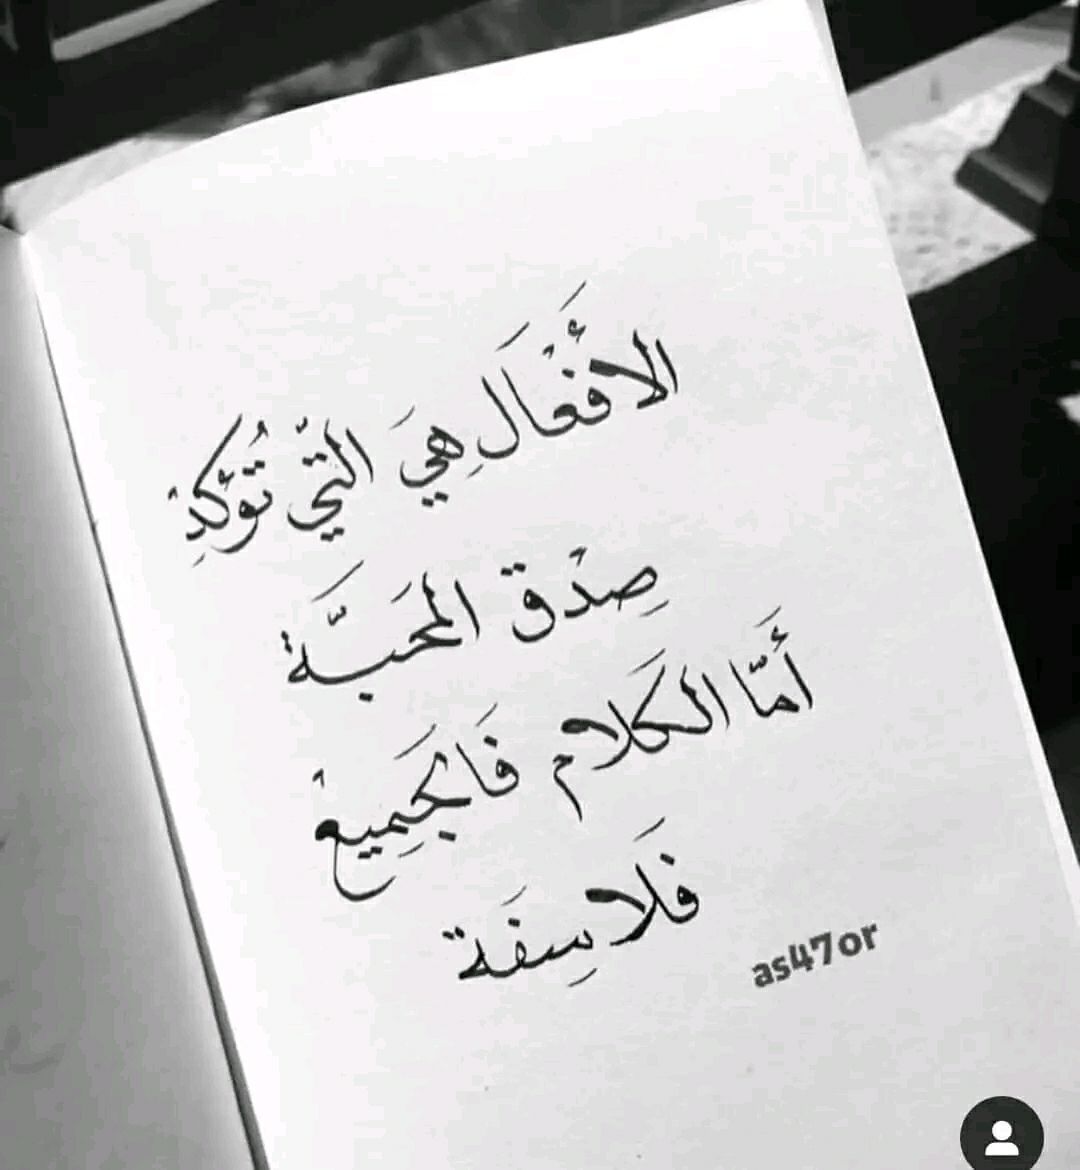 الأفْعَال هِيَ الَّتِي تُؤكدِ
صِدْق المَحَبَّة
أَمَّا الكَلام فَالجَمِيعْ
فَلاسِفَة
as47or